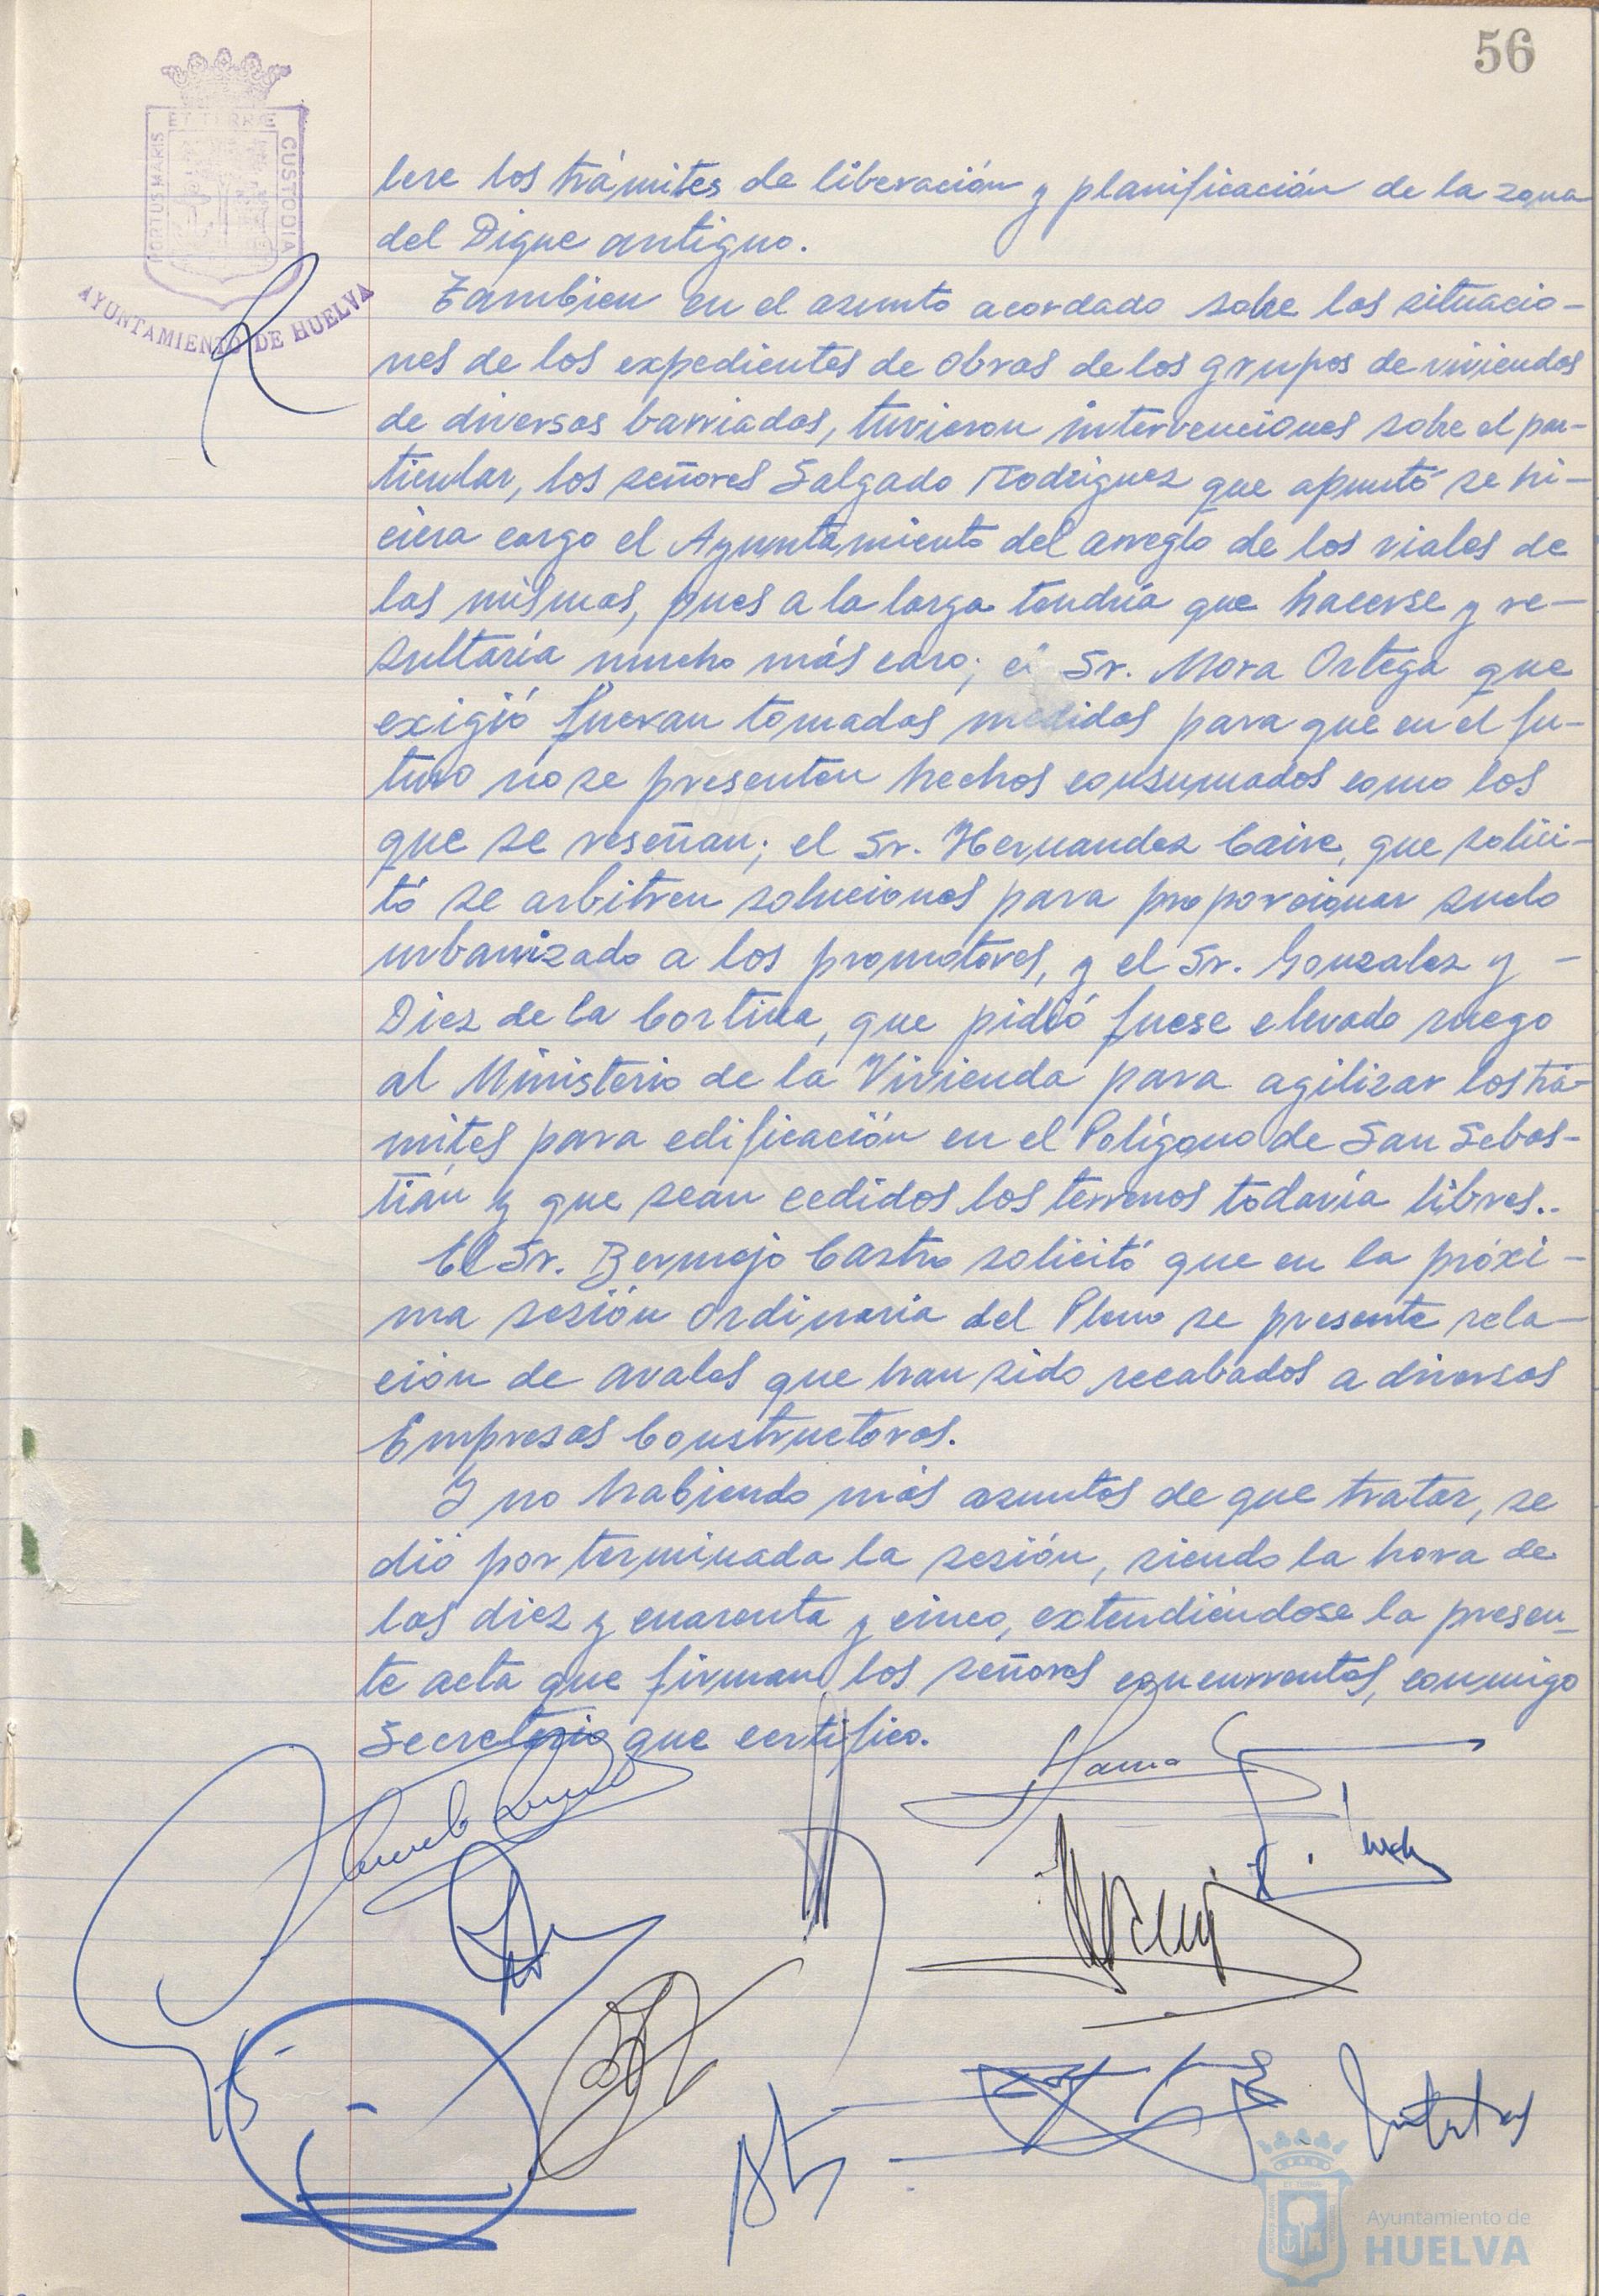 56
ET TERRÆ
PORTUS MARIS
CUSTODIA
AYUNTAMIENTO DE HUELVA
lere los trámites de liberación y planificación de la zona
del Dique antiguo.
Tambien en el asunto acordado sobre las situacio-
nes de los expedientes de obras de los grupos de viviendas
de diversas barriadas, tuvieron intervenciones sobre el par-
ticular, los señores Salgado Rodriguez que apuntó se hi-
ciera cargo el Ayuntamiento del arreglo de los viales de
las mismas, pues a la larga tendría que hacerse y re-
sultaría mucho más caro; el Sr. Mora Ortega que
exigió fueran tomadas medidas para que en el fu-
turo no se presenten hechos consumados como los
que se reseñan; el Sr. Hernandez Caire, que solici-
tó se arbitren soluciones para proporcionar suelo
urbanizado a los promotores, y el Sr. Gonzalez y -
Diez de la Cortina, que pidió fuese elevado ruego
al Ministerio de la Vivienda para agilizar los trá-
mites para edificación en el Polígono de San Sebas-
tián y que sean cedidos los terrenos todavía libres..
El Sr. Bermejo Castro solicitó que en la próxi-
ma sesión ordinaria del Pleno se presente rela-
ción de avales que han sido recabados a diversas
Empresas Constructoras.
Y no habiendo más asuntos de que tratar, se
dió por terminada la sesión, siendo la hora de
las diez y cuarenta y cinco, extendiéndose la presen-
te acta que firman los señores concurrentes, conmigo
Secretario que certifico.
Ayuntamiento de
HUELVA